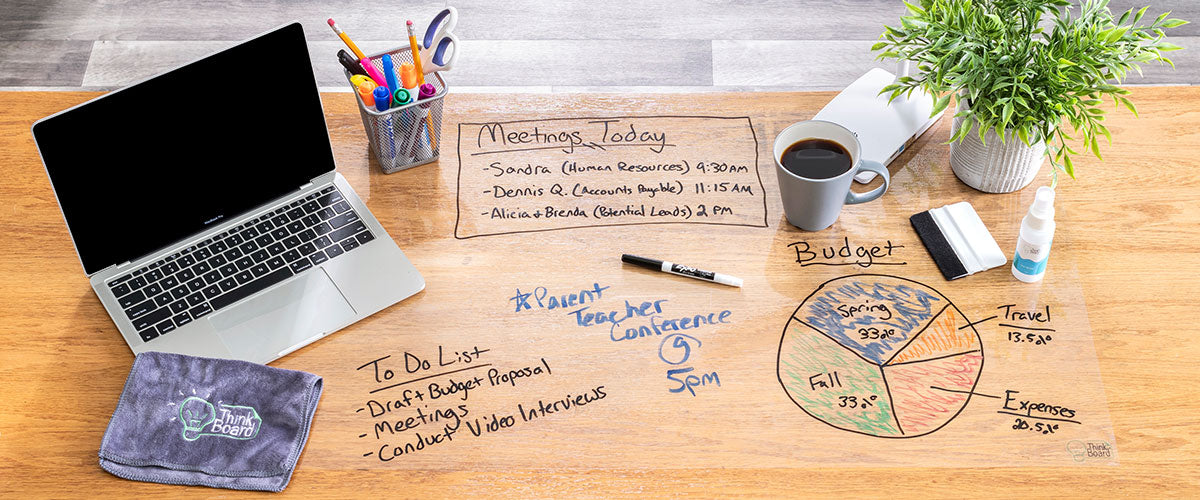 Meetings Today
-Sandra (Human Resources) 9:30AM
-Dennis Q. (Accounts Payable) 11:15AM
-Alicia & Brenda (Potential Leads) 2 PM
Budget
Spring
33%
Travel
13.5%
Fall
33%
Expenses
20.5%
☆Parent
Teacher
Conference
@
5pm
To Do List
-Draft Budget Proposal
-Meetings
-Conduct Video Interviews
Think
Board
Think
Board